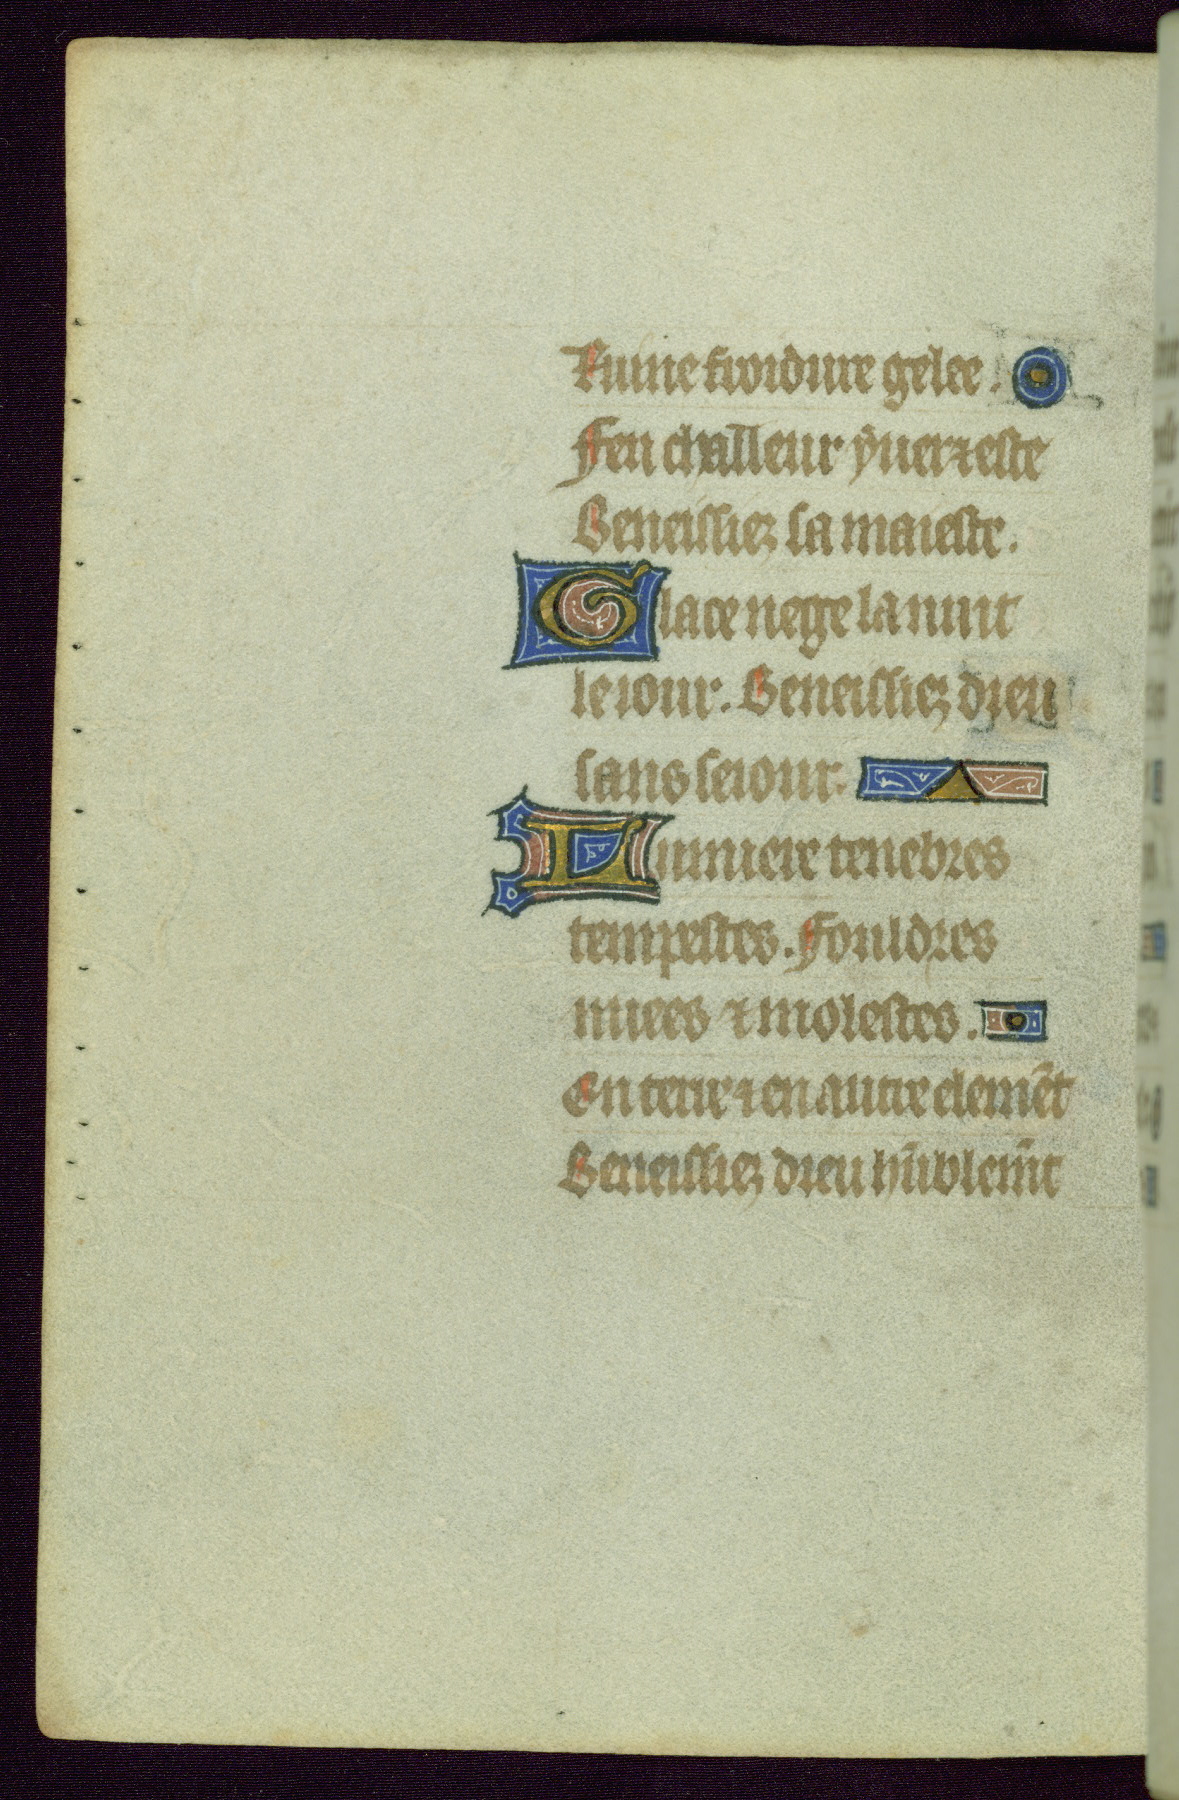 Ruine froidure gelee.
Feu challeur yuer ⁊ este
Beneissiez sa maieste.
Glace nege la nuit
le iour. Beneissiez dieu
sans seiour.
Lumiere tenebres
tempestes. Fouldres
nuees ⁊ molestes.
En terre ⁊ en autre elemēt
Beneissiez dieu hūblemēt